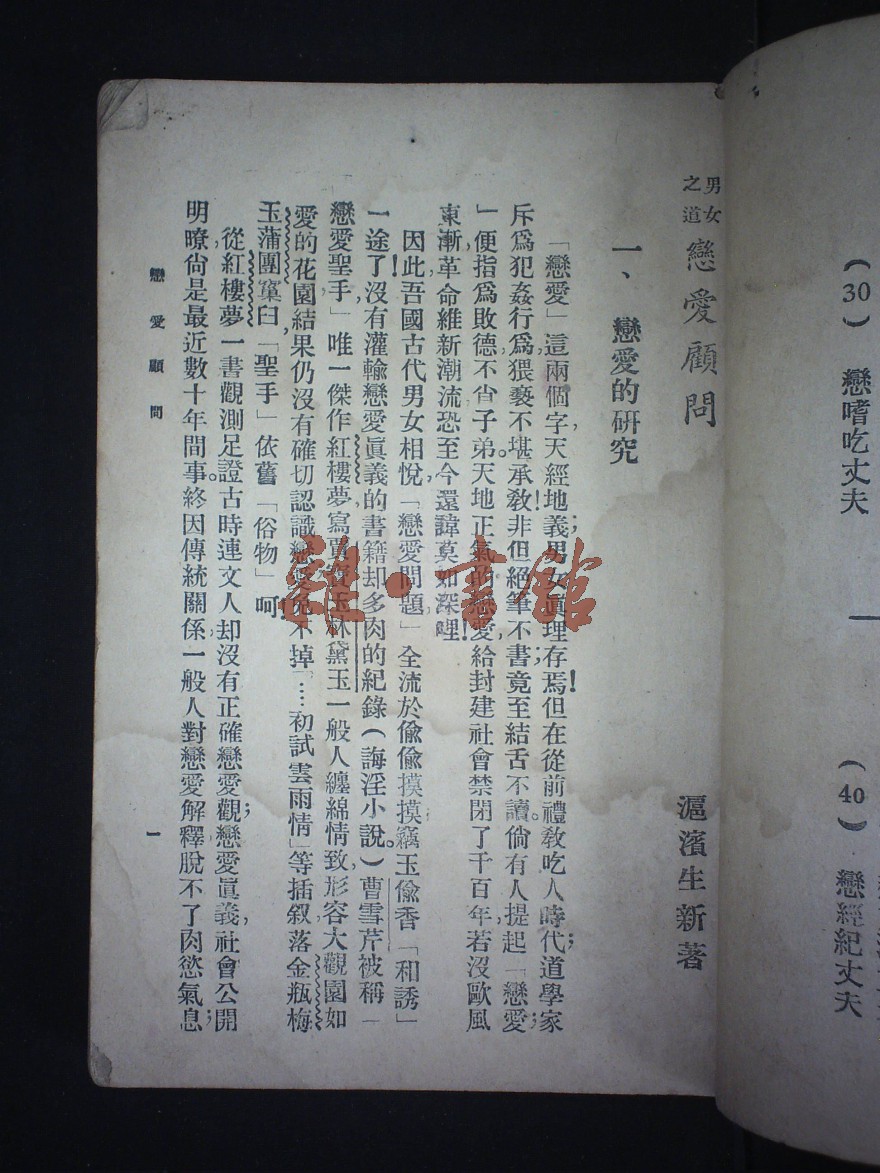 (30) 戀嗜吃丈夫
(40) 戀經紀丈夫
男女之道 戀愛顧問 滬濱生新著
一、戀愛的研究
「戀愛」這兩個字天經地義;男女眞理存焉!但在從前禮敎吃人時代;道學家
斥爲犯姦行爲,猥褻不堪承敎!非但絕筆不書;竟至結舌不讀。倘有人提起「戀愛
」便指爲敗德不肖子弟。天地正氣的戀愛,給封建社會禁閉了千百年,若沒歐風
東漸,革命維新潮流,恐至今還諱莫如深哩!
因此吾國古代男女相悅,「戀愛問題」全流於偸偸摸摸竊玉偸香「和誘」
一途了!沒有灌輸戀愛眞義的書籍,却多肉的紀錄(誨淫小說。)曹雪芹被稱「
戀愛聖手」唯一傑作紅樓夢,寫賈寶玉林黛玉一般人纏綿情致,形容大觀園如
愛的花園,結果仍沒有確切認識戀愛,免不掉「…初試雲雨情」等插叙,落金瓶梅
玉蒲團窠臼,「聖手」依舊「俗物」呵!
從紅樓夢一書觀測,足證古時連文人却沒有正確戀愛觀;戀愛眞義,社會公開
明瞭,尙是最近數十年間事。終因傳統關係,一般人對戀愛解釋脫不了肉慾氣息;
戀愛顧問 一
雜·書館